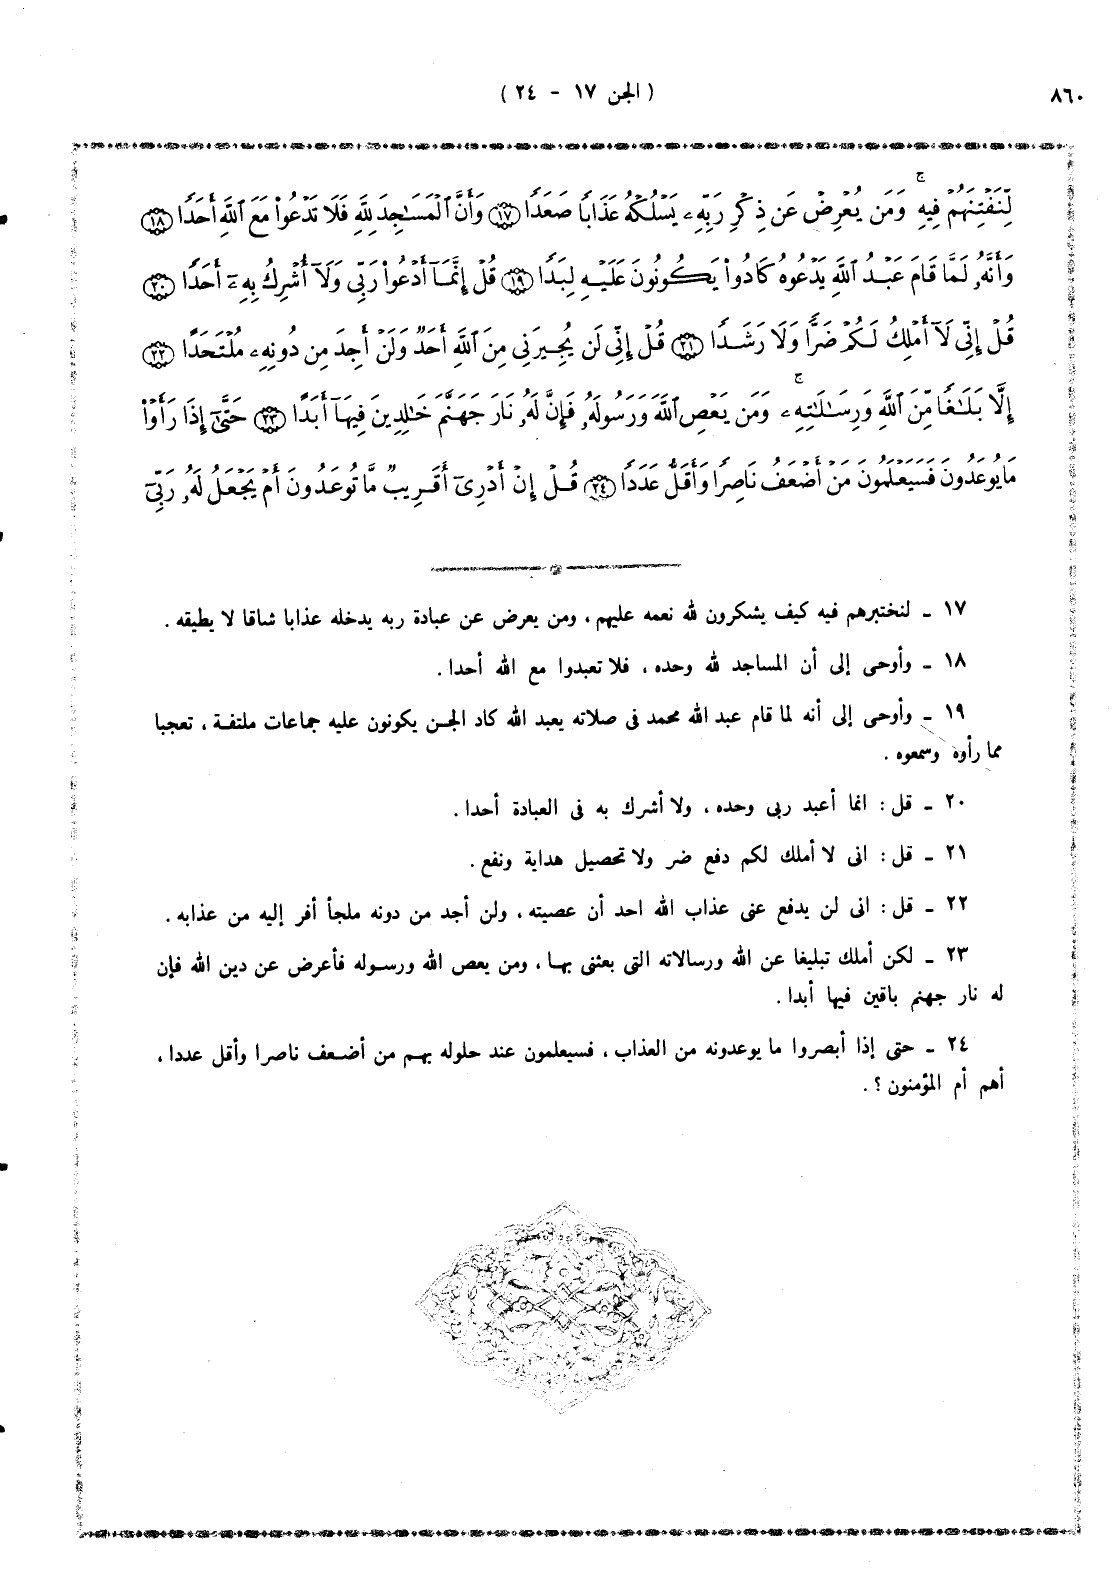 ٨٦٠
( الجن ١٧ - ٢٤ )
لِّنَفْتِنَهُمْ فِيهِ ۚ وَمَن يُعْرِضْ عَن ذِكْرِ رَبِّهِۦ يَسْلُكْهُ عَذَابًا صَعَدًا ١٧ وَأَنَّ الْمَسَٰجِدَ لِلَّهِ فَلَا تَدْعُوا۟ مَعَ اللَّهِ أَحَدًا ١٨
وَأَنَّهُۥ لَمَّا قَامَ عَبْدُ اللَّهِ يَدْعُوهُ كَادُوا۟ يَكُونُونَ عَلَيْهِ لِبَدًا ١٩ قُلْ إِنَّمَآ أَدْعُوا۟ رَبِّى وَلَآ أُشْرِكُ بِهِۦٓ أَحَدًا ٢٠
قُلْ إِنِّى لَآ أَمْلِكُ لَكُمْ ضَرًّا وَلَا رَشَدًا ٢١ قُلْ إِنِّى لَن يُجِيرَنِى مِنَ اللَّهِ أَحَدٌ وَلَنْ أَجِدَ مِن دُونِهِۦ مُلْتَحَدًا ٢٢
إِلَّا بَلَٰغًا مِّنَ اللَّهِ وَرِسَٰلَٰتِهِۦ ۚ وَمَن يَعْصِ اللَّهَ وَرَسُولَهُۥ فَإِنَّ لَهُۥ نَارَ جَهَنَّمَ خَٰلِدِينَ فِيهَآ أَبَدًا ٢٣ حَتَّىٰٓ إِذَا رَأَوْا۟
مَا يُوعَدُونَ فَسَيَعْلَمُونَ مَنْ أَضْعَفُ نَاصِرًا وَأَقَلُّ عَدَدًا ٢٤ قُلْ إِنْ أَدْرِىٓ أَقَرِيبٌ مَّا تُوعَدُونَ أَمْ يَجْعَلُ لَهُۥ رَبِّىٓ
١٧ ـ لنختبرهم فيه كيف يشكرون لله نعمه عليهم ، ومن يعرض عن عبادة ربه يدخله عذابا شاقا لا يطيقه .
١٨ ـ وأوحى إلى أن المساجد لله وحده ، فلا تعبدوا مع الله أحدا .
١٩ ـ وأوحى إلى أنه لما قام عبد الله محمد فى صلاته يعبد الله كاد الجن يكونون عليه جماعات ملتفة ، تعجبا
مما رأوه وسمعوه .
٢٠ ـ قل : انما أعبد ربى وحده ، ولا أشرك به فى العبادة أحدا .
٢١ ـ قل : انى لا أملك لكم دفع ضر ولا تحصيل هداية ونفع .
٢٢ ـ قل : انى لن يدفع عنى عذاب الله احد أن عصيته ، ولن أجد من دونه ملجأ أفر إليه من عذابه .
٢٣ ـ لكن أملك تبليغا عن الله ورسالاته التى بعثنى بها ، ومن يعص الله ورسوله فأعرض عن دين الله فإن
له نار جهنم باقين فيها أبدا .
٢٤ ـ حتى إذا أبصروا ما يوعدونه من العذاب ، فسيعلمون عند حلوله بهم من أضعف ناصرا وأقل عددا ،
أهم أم المؤمنون ؟ .